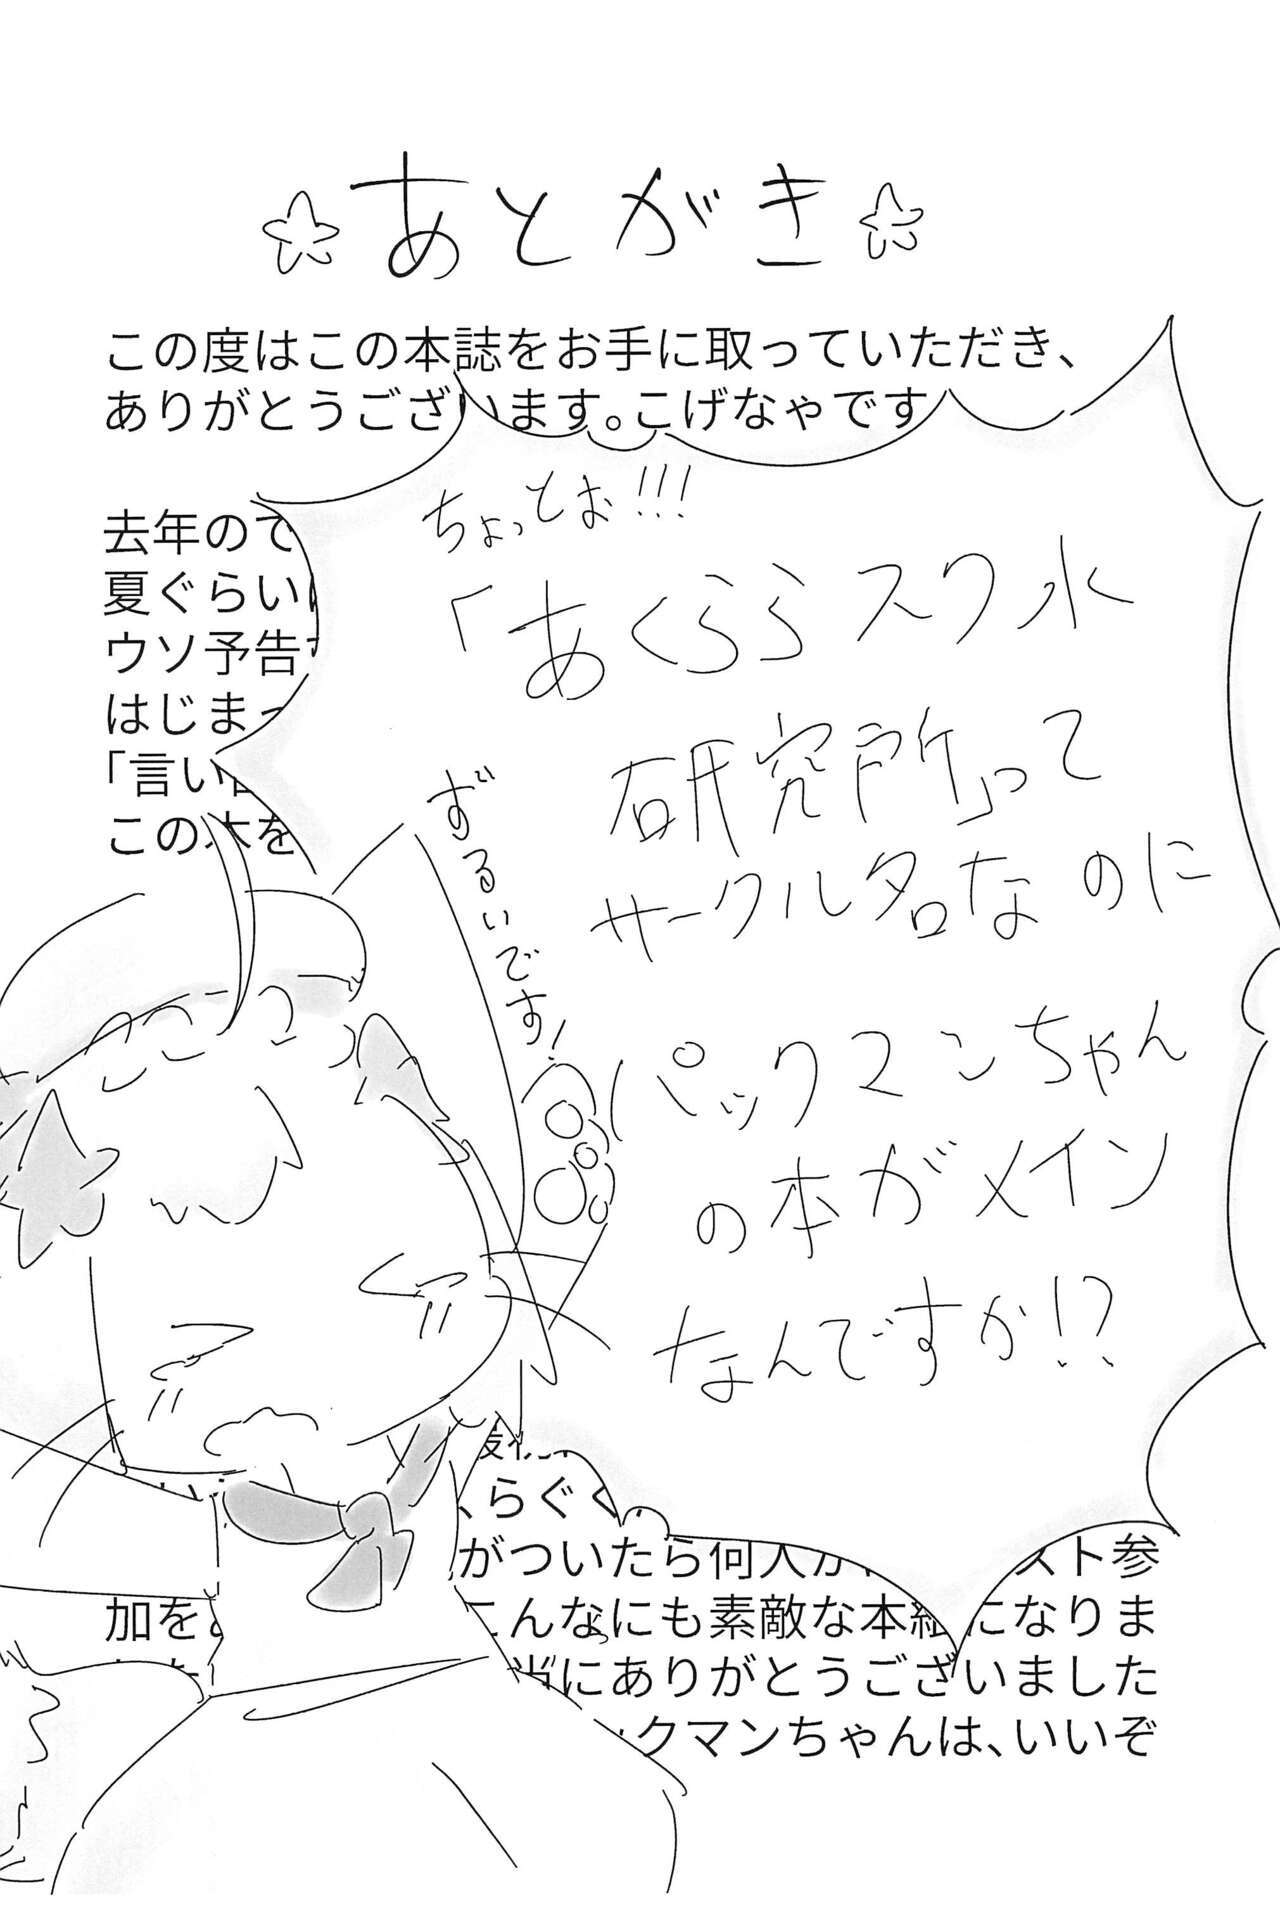 あとがき
この度はこの本誌をお手に取っていただき、
ありがとうございます。こげなゃです
去年ので
夏ぐらい
ウソ予告
はじまっ
「言い
この本を
ちょっとぉ!!!
「あくららスク水
研究所」って
サークル名なのに
パックマンちゃん
の本がメイン
なんですか!?
ずるいです!
、らぐく
がついたら何人か スト参
加を こんなにも素敵な本 になりま
当にありがとうございました
クマンちゃんは、いいぞ